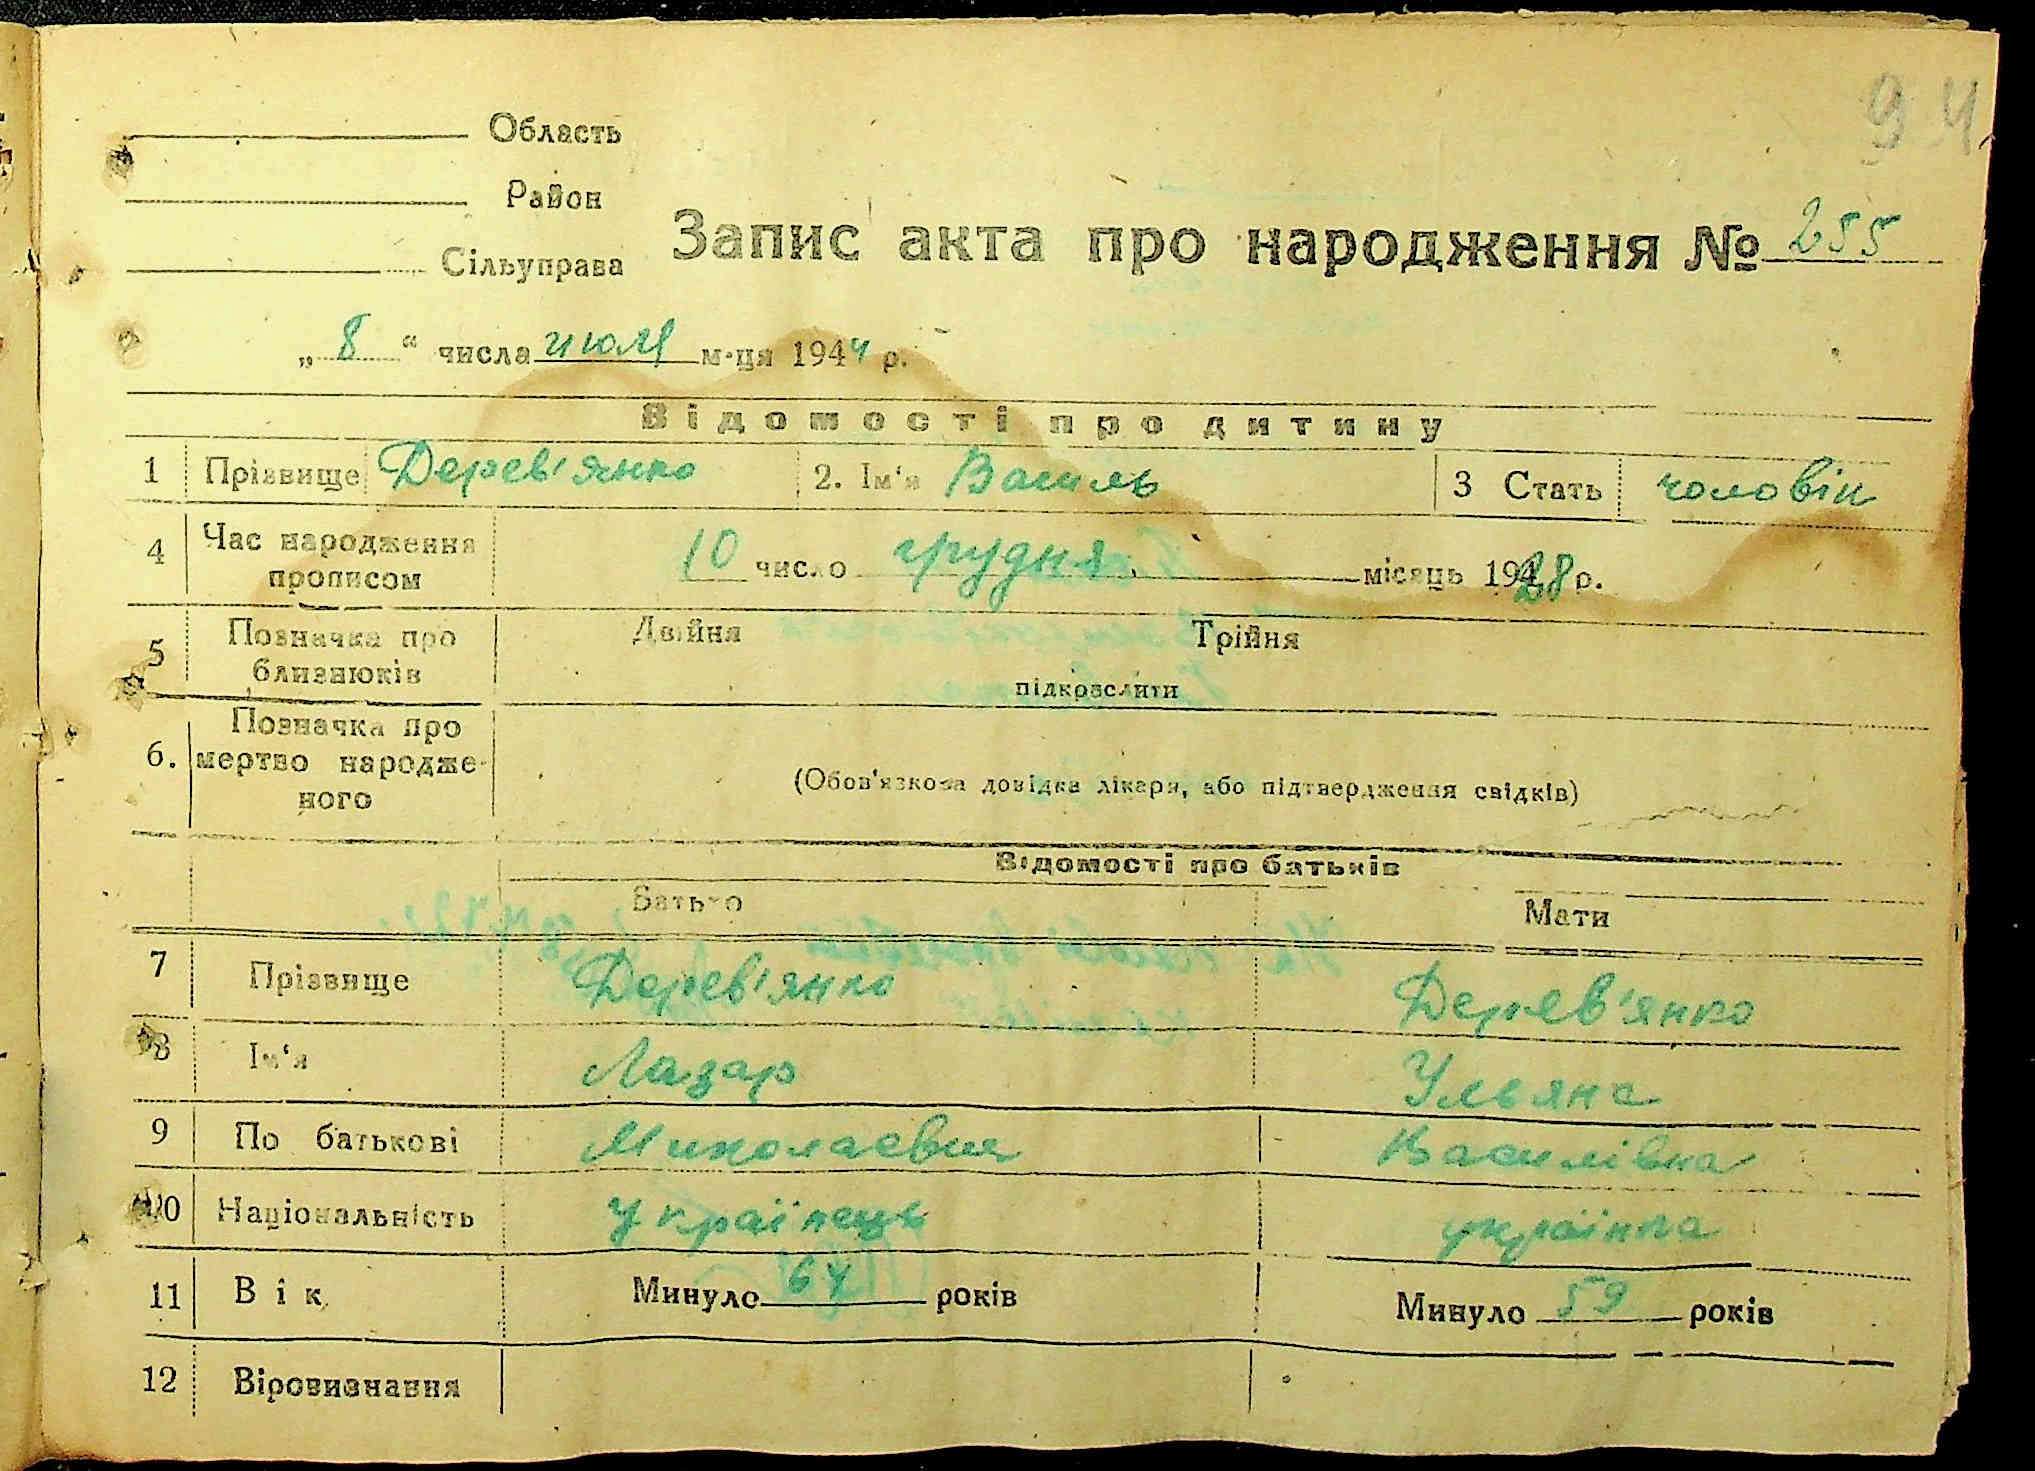 94
Область
Район
Сільуправа
Запис акта про народження № 255
„ 8 “ числа июля м-ця 1944 р.
Відомості про дитину
1 Прізвище Дерев'янко 2. Ім'я Василь 3 Стать чоловік
4 Час народження прописом 10 число грудня місяць 1928 р.
5 Позначка про близнюків Двійня Трійня
підкреслити
6. Позначка про мертво народже-
ного
(Обов'язкова довідка лікаря, або підтвердження свідків)
Відомості про батьків
Батько Мати
7 Прізвище Дерев'янко Дерев'янко
8 Ім'я Лазар Ульяна
9 По батькові Миколаєвич Василівна
10 Національність українець українка
11 Вік Минуло 64 років Минуло 59 років
12 Віровизнання